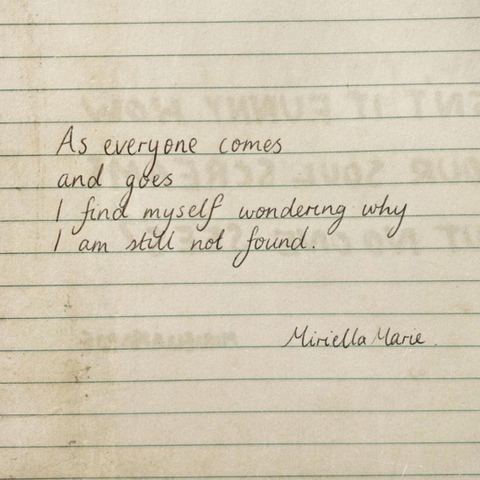 As everyone comes
and goes
I find myself wondering why
I am still not found.
Miriella Marie.